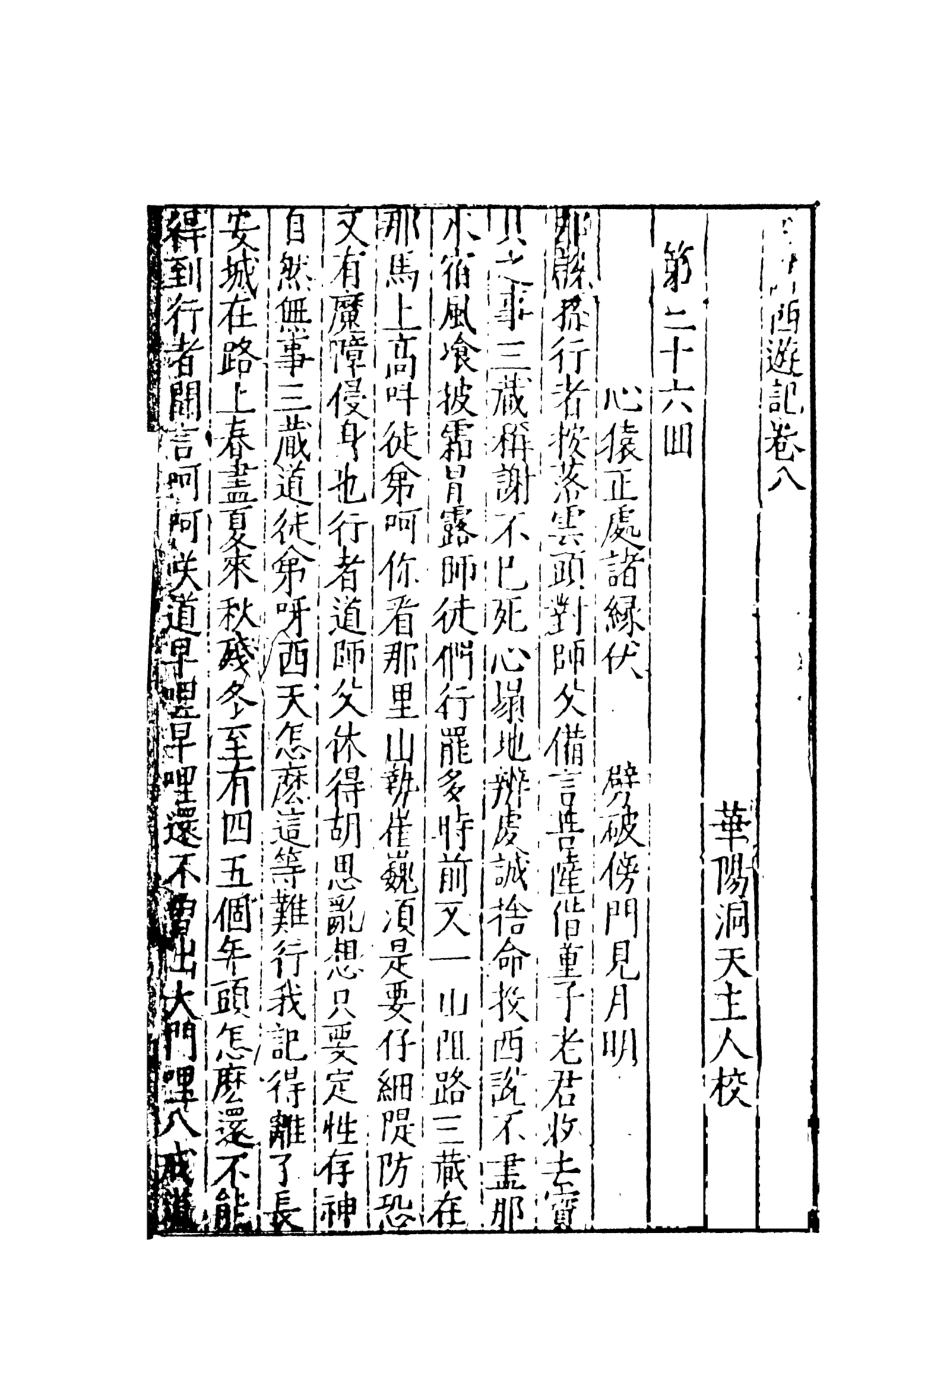 西遊記卷八
華陽洞天主人校
第二十六回
心猿正處諸緣伏　劈破傍門見月明
那縣孫行者按落雲頭對師父備言菩薩借童子老君收去寶
貝之事三藏稱謝不已死心塌地辦虔誠捨命投西說不盡那
水宿風飡披霜冒露師徒們行罷多時前又一山阻路三藏在
那馬上高叫徒弟呵你看那里山勢崔巍須是要仔細隄防恐
又有魔障侵身也行者道師父休得胡思亂想只要定性存神
自然無事三藏道徒弟呀西天怎麽這等難行我記得離了長
安城在路上春盡夏來秋殘冬至有四五個年頭怎麽還不能
得到行者聞言呵呵咲道早哩早哩還不曾出大門哩八戒道